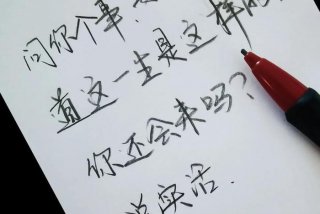 问你个事，
道这一生是这样的
你还会来吗？
说实话.